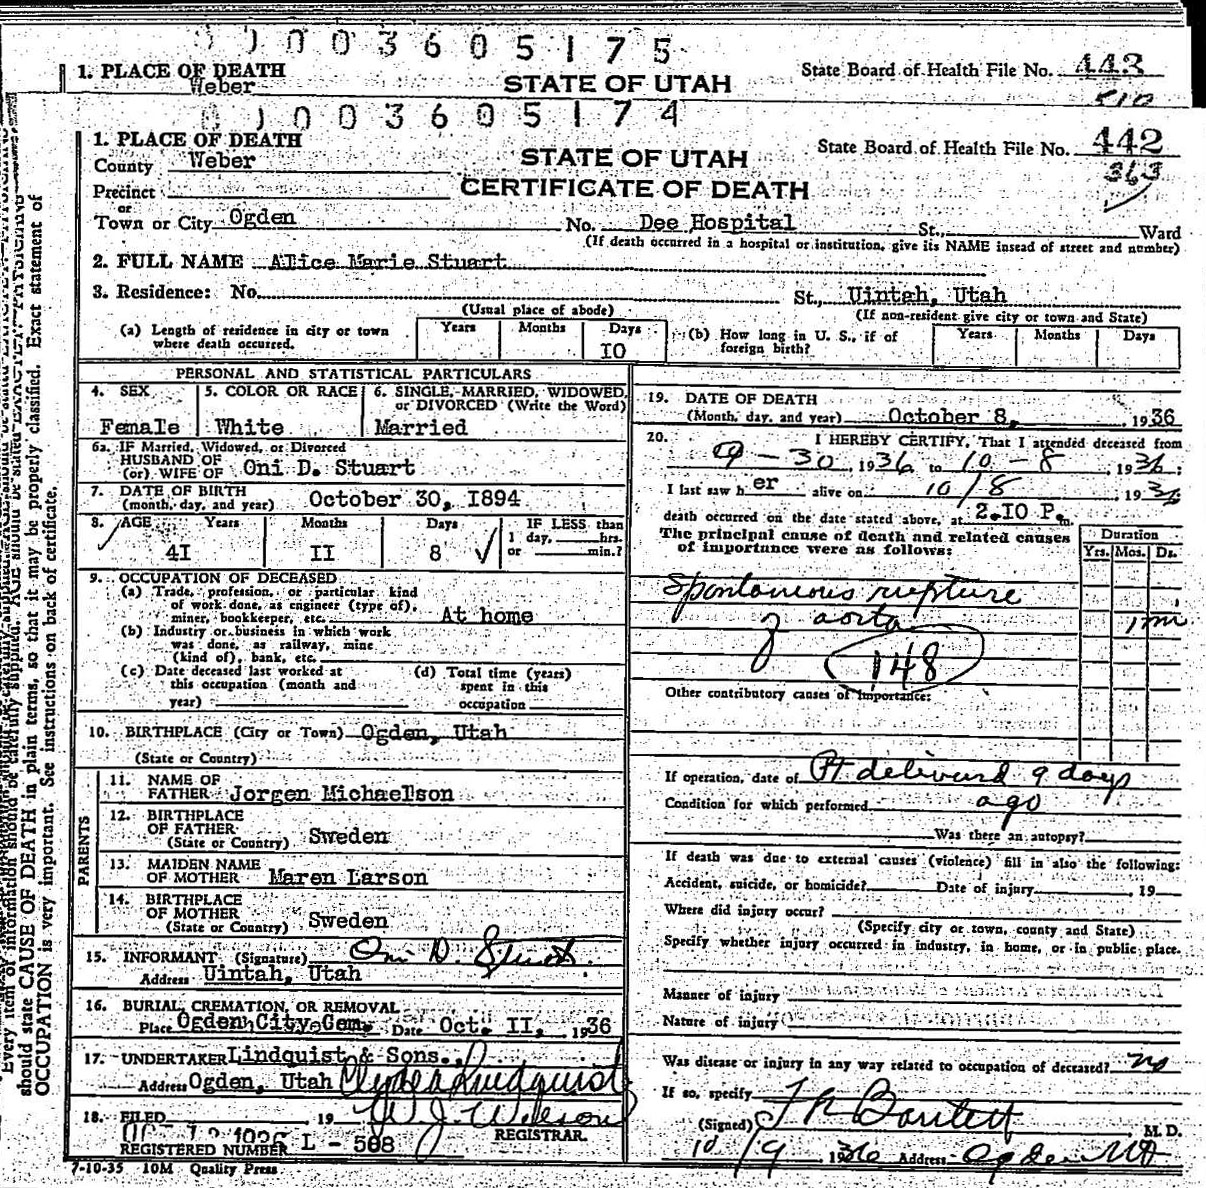 0003605175
1. PLACE OF DEATH
Weber
STATE OF UTAH
State Board of Health File No. 443
510
0003605174
1. PLACE OF DEATH
County Weber
STATE OF UTAH
State Board of Health File No. 442
363
Precinct
CERTIFICATE OF DEATH
or
Town or City Ogden No. Dee Hospital St., Ward
(If death occurred in a hospital or institution, give its NAME insead of street and number)
2. FULL NAME Alice Marie Stuart
3. Residence: No. St., Uintah, Utah
(Usual place of abode) (If non-resident give city or town and State)
(a) Length of residence in city or town where death occurred. Years Months Days I0
(b) How long in U. S., if of foreign birth? Years Months Days
PERSONAL AND STATISTICAL PARTICULARS
4. SEX Female
5. COLOR OR RACE White
6. SINGLE, MARRIED, WIDOWED, or DIVORCED (Write the Word) Married
6a. IF Married, Widowed, or Divorced
HUSBAND OF
(or) WIFE OF Oni D. Stuart
7. DATE OF BIRTH
(month, day, and year) October 30, I894
8. AGE Years Months Days IF LESS than
4I II 8 1 day, hrs.
or min.?
9. OCCUPATION OF DECEASED
(a) Trade, profession, or particular kind
of work done, as engineer (type of),
miner, bookkeeper, etc. At home
(b) Industry or business in which work
was done, as railway, mine
(kind of), bank, etc.
(c) Date deceased last worked at
this occupation (month and
year)
(d) Total time (years)
spent in this
occupation
10. BIRTHPLACE (City or Town) Ogden, Utah
(State or Country)
PARENTS
11. NAME OF
FATHER Jorgen Michaelson
12. BIRTHPLACE
OF FATHER
(State or Country) Sweden
13. MAIDEN NAME
OF MOTHER Maren Larson
14. BIRTHPLACE
OF MOTHER
(State or Country) Sweden
15. INFORMANT (Signature) Oni D. Stuart
Address Uintah, Utah
16. BURIAL, CREMATION, OR REMOVAL
Place Ogden City Cem. Date Oct. II, 1936
17. UNDERTAKER Lindquist & Sons.
Address Ogden, Utah Clyde Lindquist
18. FILED 19 W J. Wilson
REGISTRAR.
REGISTERED NUMBER L - 508
7-10-35 10M Quality Press
19. DATE OF DEATH
(Month, day, and year) October 8, 1936
20. I HEREBY CERTIFY, That I attended deceased from
9 - 30, 1936 to 10 - 8, 1936;
I last saw her alive on 10/8 1936
death occurred on the date stated above, at 2.I0 P. m.
The principal cause of death and related causes
of importance were as follows:
Duration
Yrs. Mos. Ds.
Spontaneous rupture
of aorta 1 min
148
Other contributory causes of importance:
If operation, date of Pt delivered 9 days
Condition for which performed ago
Was there an autopsy?
If death was due to external causes (violence) fill in also the following:
Accident, suicide, or homicide? Date of injury , 19
Where did injury occur?
(Specify city or town, county and State)
Specify whether injury occurred in industry, in home, or in public place.
Manner of injury
Nature of injury
Was disease or injury in any way related to occupation of deceased? no
If so, specify
(Signed) Bartlett M. D.
10/9 1936 Address Ogden
Every item of information should be carefully supplied. AGE should be stated
should state CAUSE OF DEATH in plain terms, so that it may be properly classified. Exact statement of
OCCUPATION is very important. See instructions on back of certificate.